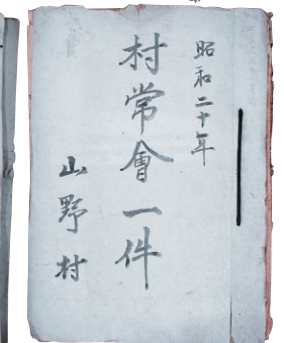 昭和二十年
村常會一件
山野村